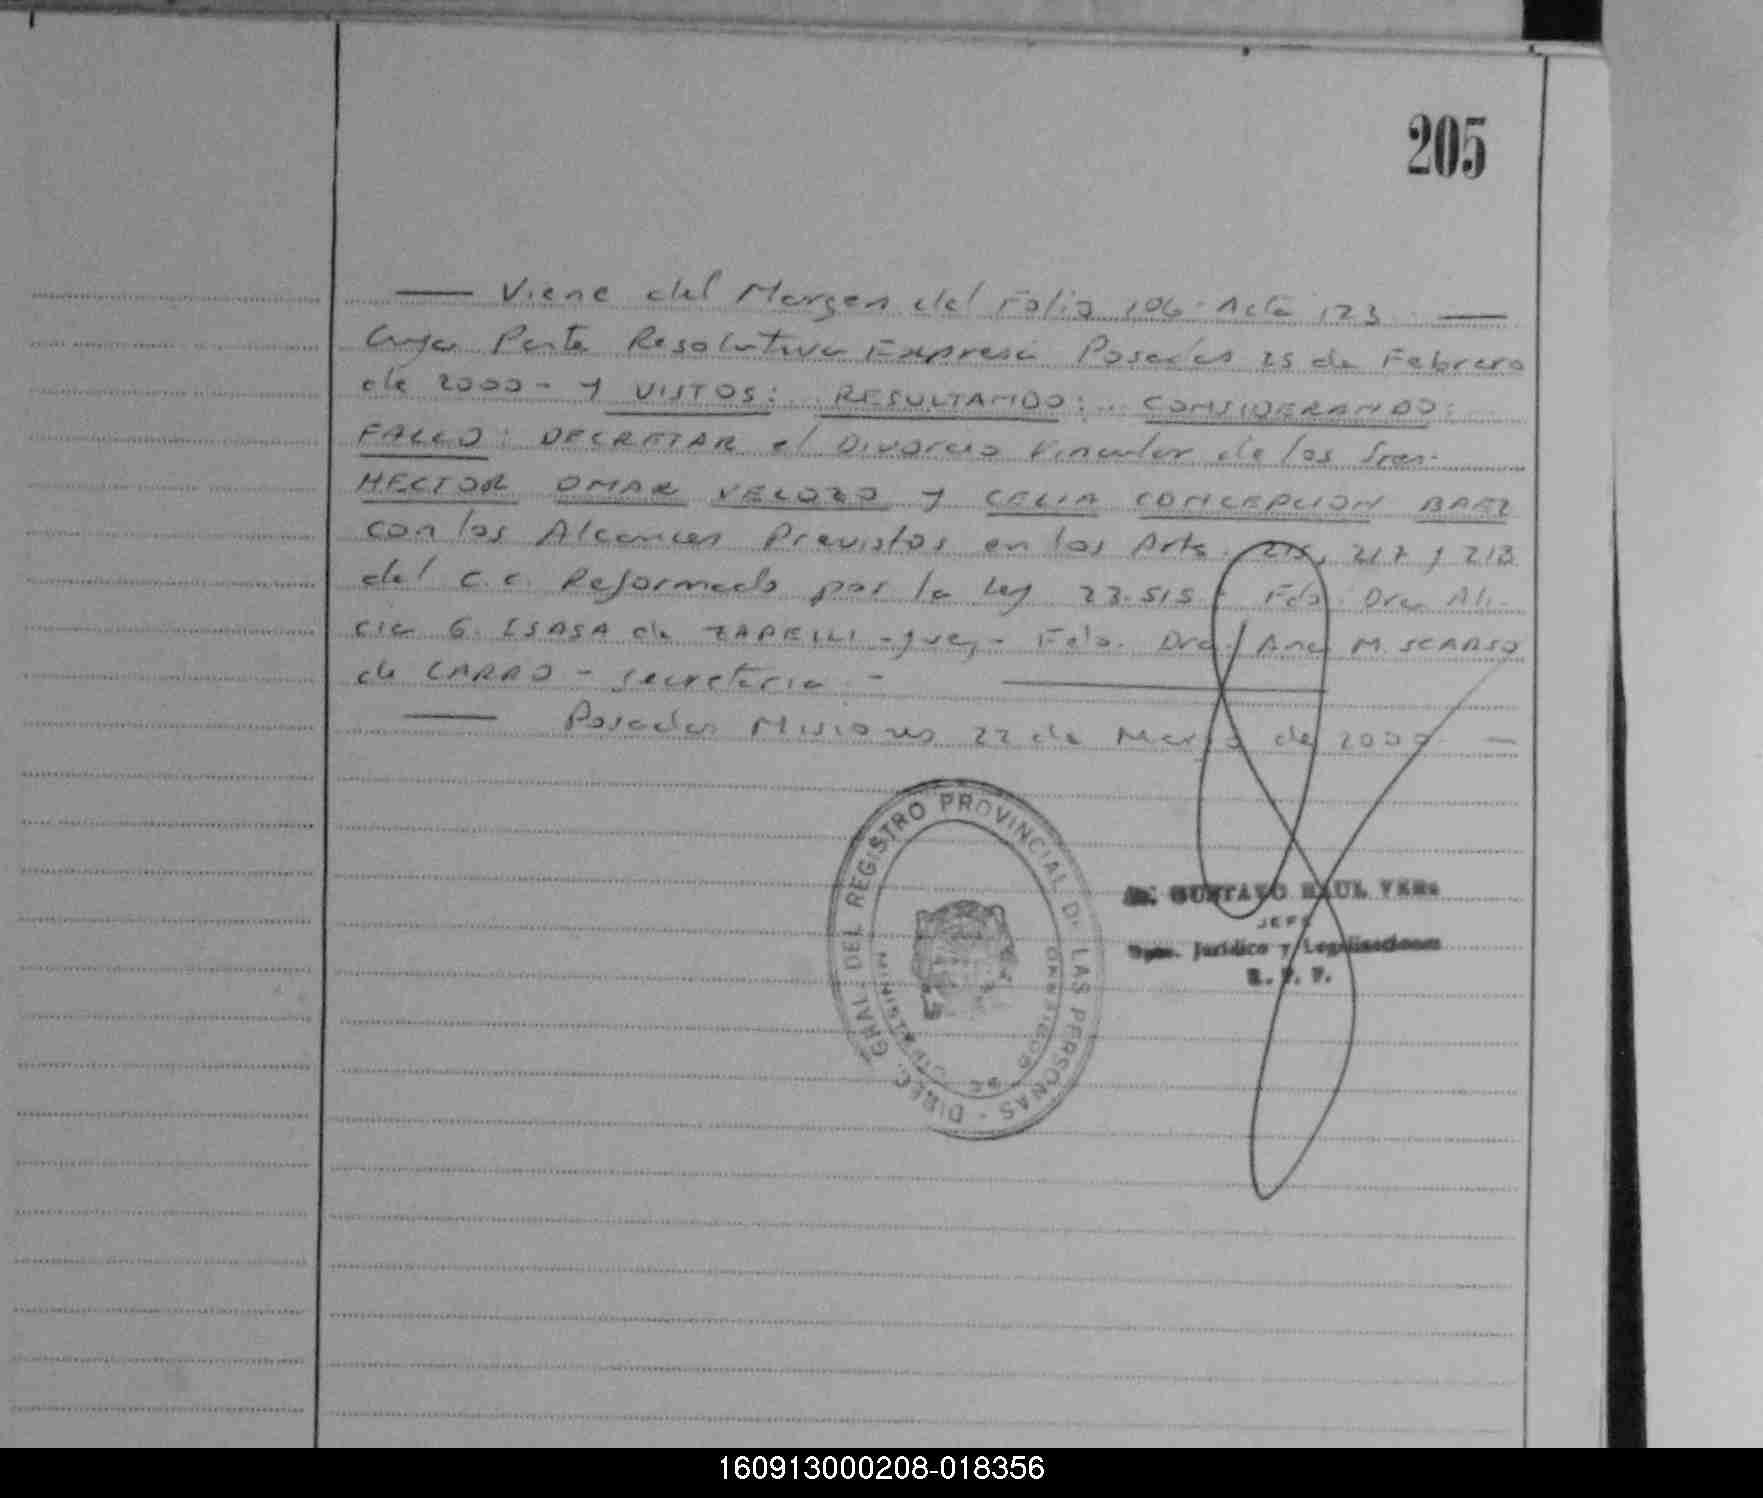 205
Viene del Margen del Folio 106 - Acta 123
Cuya Parte Resolutiva Expresa Posadas 25 de Febrero
de 2000 - Y VISTOS: RESULTANDO: CONSIDERANDO:
FALLO: DECRETAR el Divorcio Vincular de los Sres.
HECTOR OMAR VELOZO y CELIA CONCEPCION BAEZ
con los Alcances Previstos en los Arts. 217 y 218
del C.C. Reformado por la Ley 23.515 - Fdo. Dra. Ali-
cia G. ISASA de ZAPELLI - Juez - Fdo. Dra. Ana M. SCARSO
de CARRO - Secretaria -
Posadas Misiones 22 de Marzo de 2000 -
DIREC. GRAL. DEL REGISTRO PROVINCIAL DE LAS PERSONAS
MINISTERIO DE GOBIERNO
GUSTAVO RAUL VERA
JEFE
Dpto. Jurídico y Legalizaciones
R. P. P.
160913000208-018356